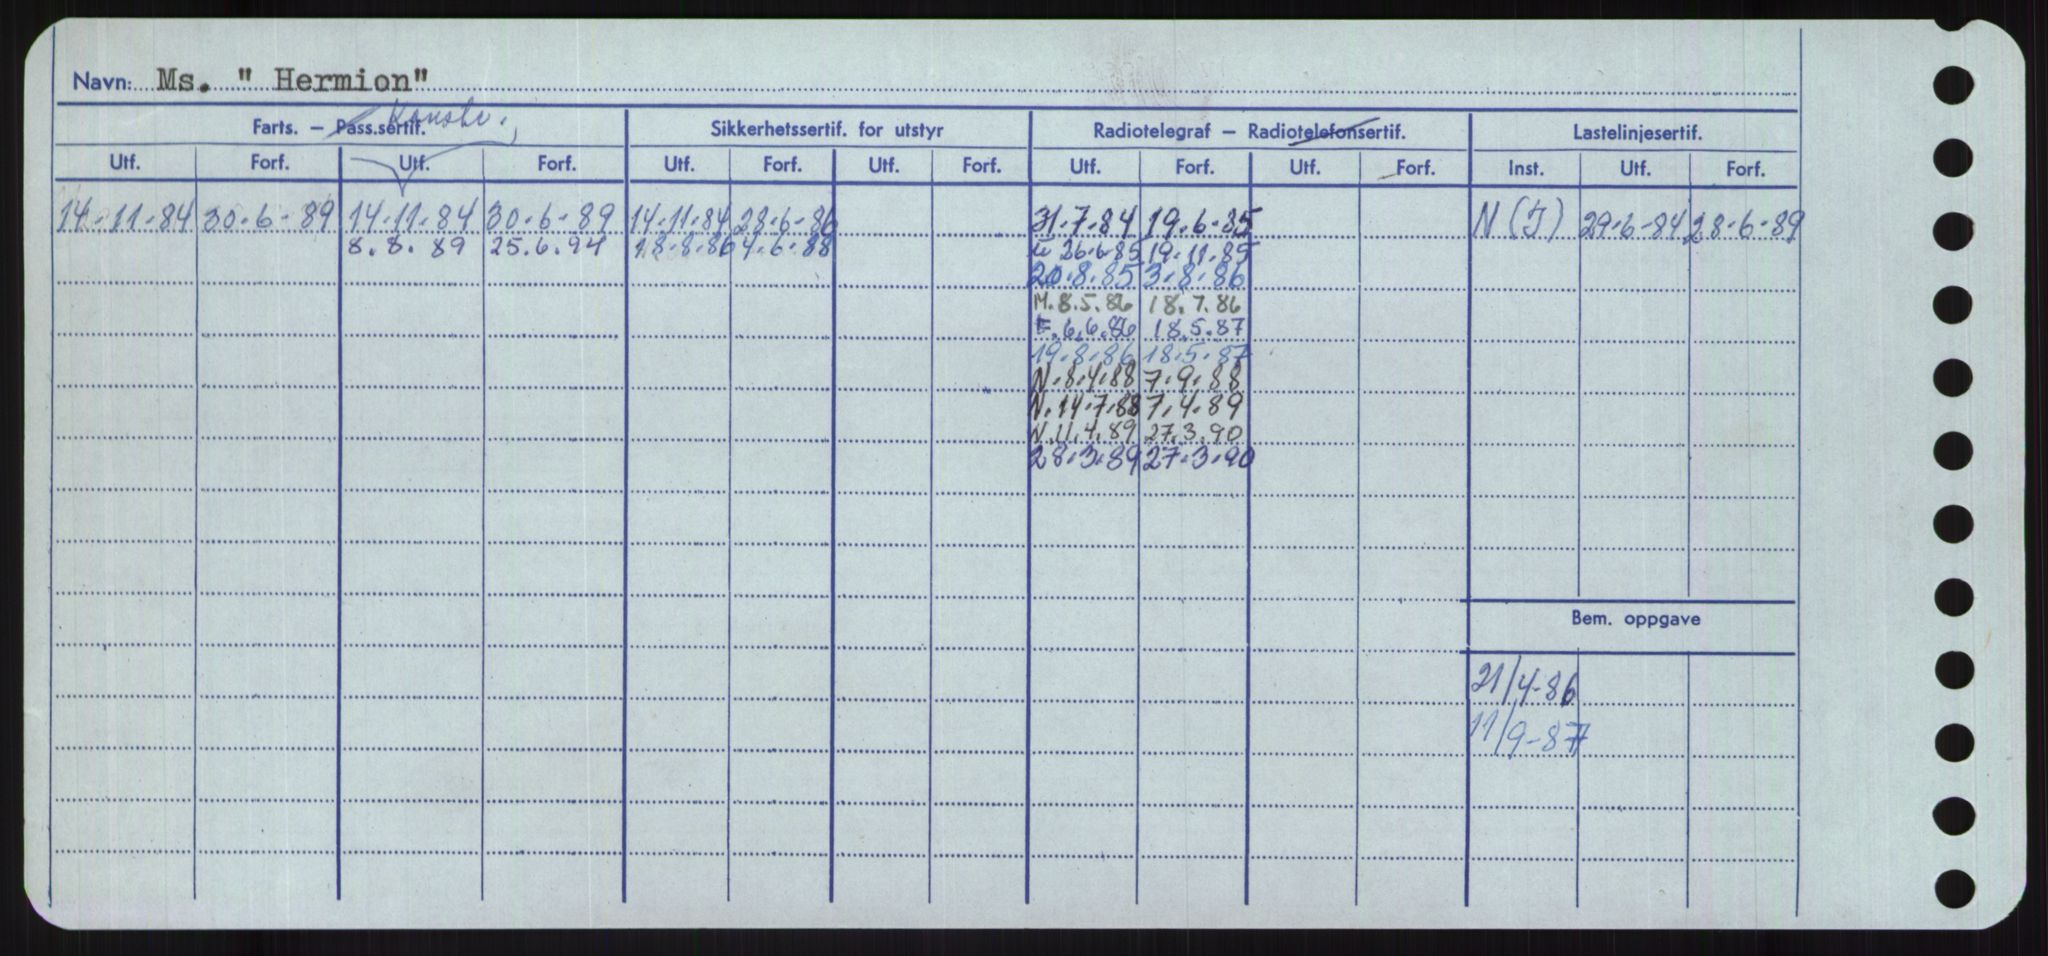 Navn: Ms. " Hermion"
Konstr.
Farts. – Pass.sertif. Sikkerhetssertif. for utstyr Radiotelegraf – Radiotelefonsertif. Lastelinjesertif.
Utf. Forf. Utf. Forf. Utf. Forf. Utf. Forf. Utf. Forf. Utf. Forf. Inst. Utf. Forf.
14-11-84 30-6-89 14-11-84 30-6-89 14-11-84 28-6-86 31.7.84 19.6.85 N (I) 29-6-84 28-6-89
8.8.89 25.6.94 18-8-86 4-6-88 26.6.85 19.11.85
20.8.85 3.8.86
M.8.5.86 18.7.86
F.6.6.86 18.5.87
19.8.86 18.5.87
N.8.4.88 7.9.88
N.14.7.88 7.4.89
N.11.4.89 27.3.90
28.3.89 27.3.90
Bem. oppgave
21/4-86
11/9-87